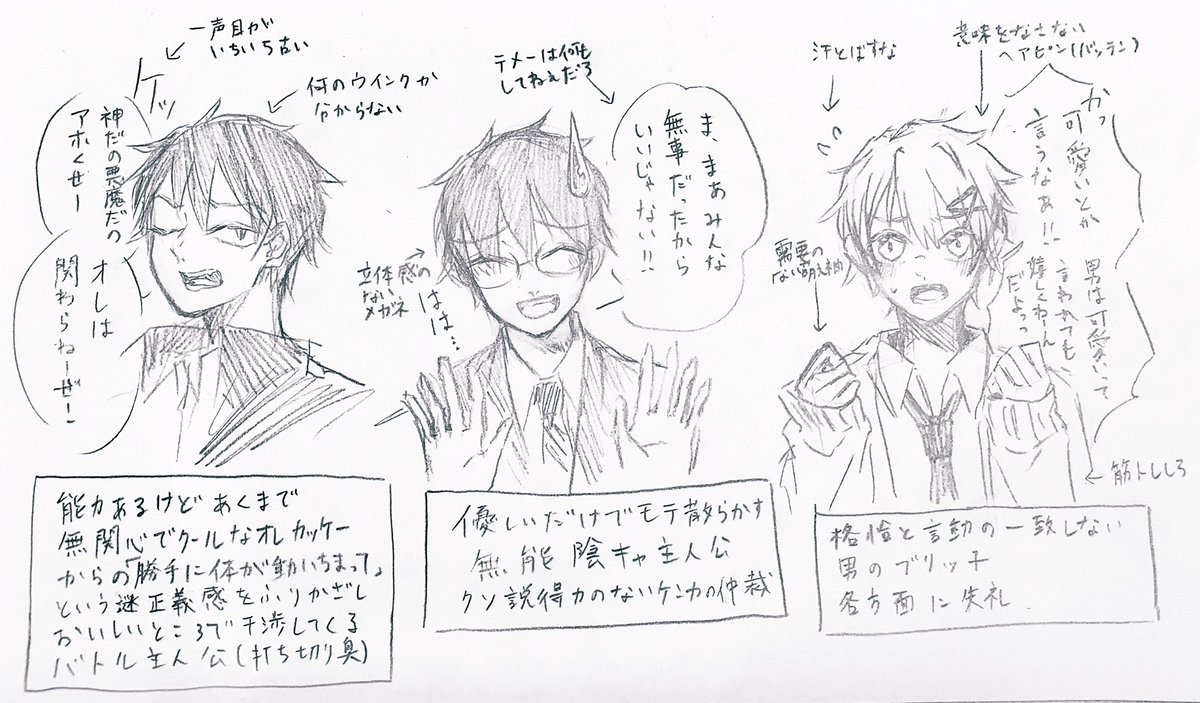 一声目が
いちいち古い
ケッ
何のウインクか
分からない
神だの悪魔だの
アホくせー
オレは
関わらねーぜー
能力あるけどあくまで
無関心でクールなオレカッケー
からの「勝手に体が動いちまって」
という謎正義感をふりかざし
おいしいところで干渉してくる
バトル主人公(打ち切り臭)
テメーは何も
してねぇだろ
ま、まあみんな
無事だったから
いいじゃない!!
立体感の
ない
メガネ
はは…
優しいだけでモテ散らかす
無能陰キャ主人公
クソ説得力のないケンカの仲裁
汗とばすな
意味をなさない
ヘアピン(バッテン)
かっ
可愛いとか
言うなあ!!
男は可愛いって
言われても、
嬉しくねーん
だよっ
需要の
ない萌え袖
←筋トレしろ
格恰と言動の一致しない
男のブリッ子
各方面に失礼.